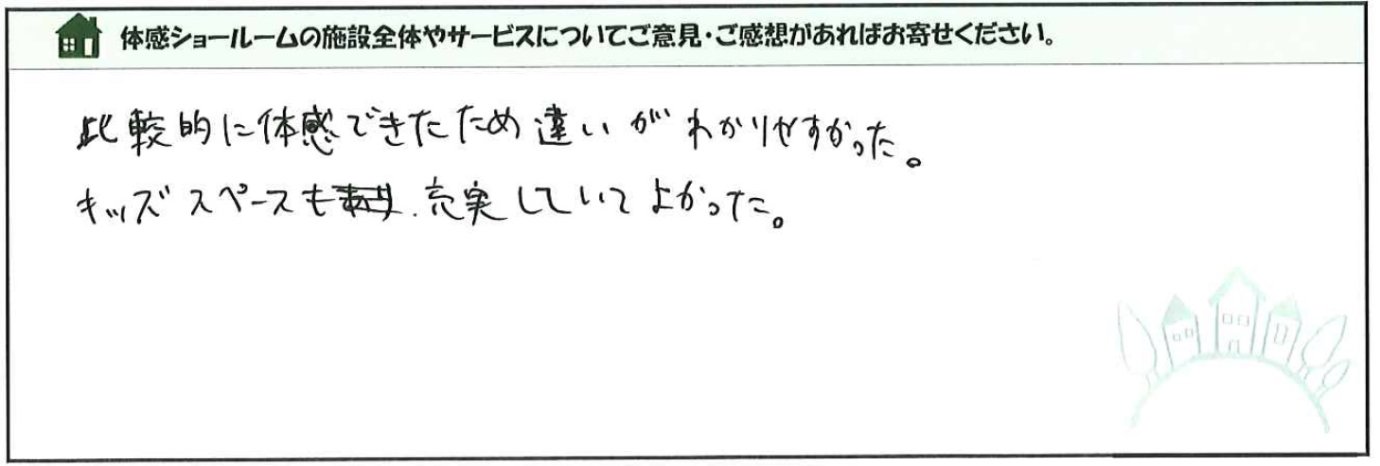 体感ショールームの施設全体やサービスについてご意見・ご感想があればお寄せください。
比較的に体感できたため違いがわかりやすかった。
キッズスペースも充実していてよかった。